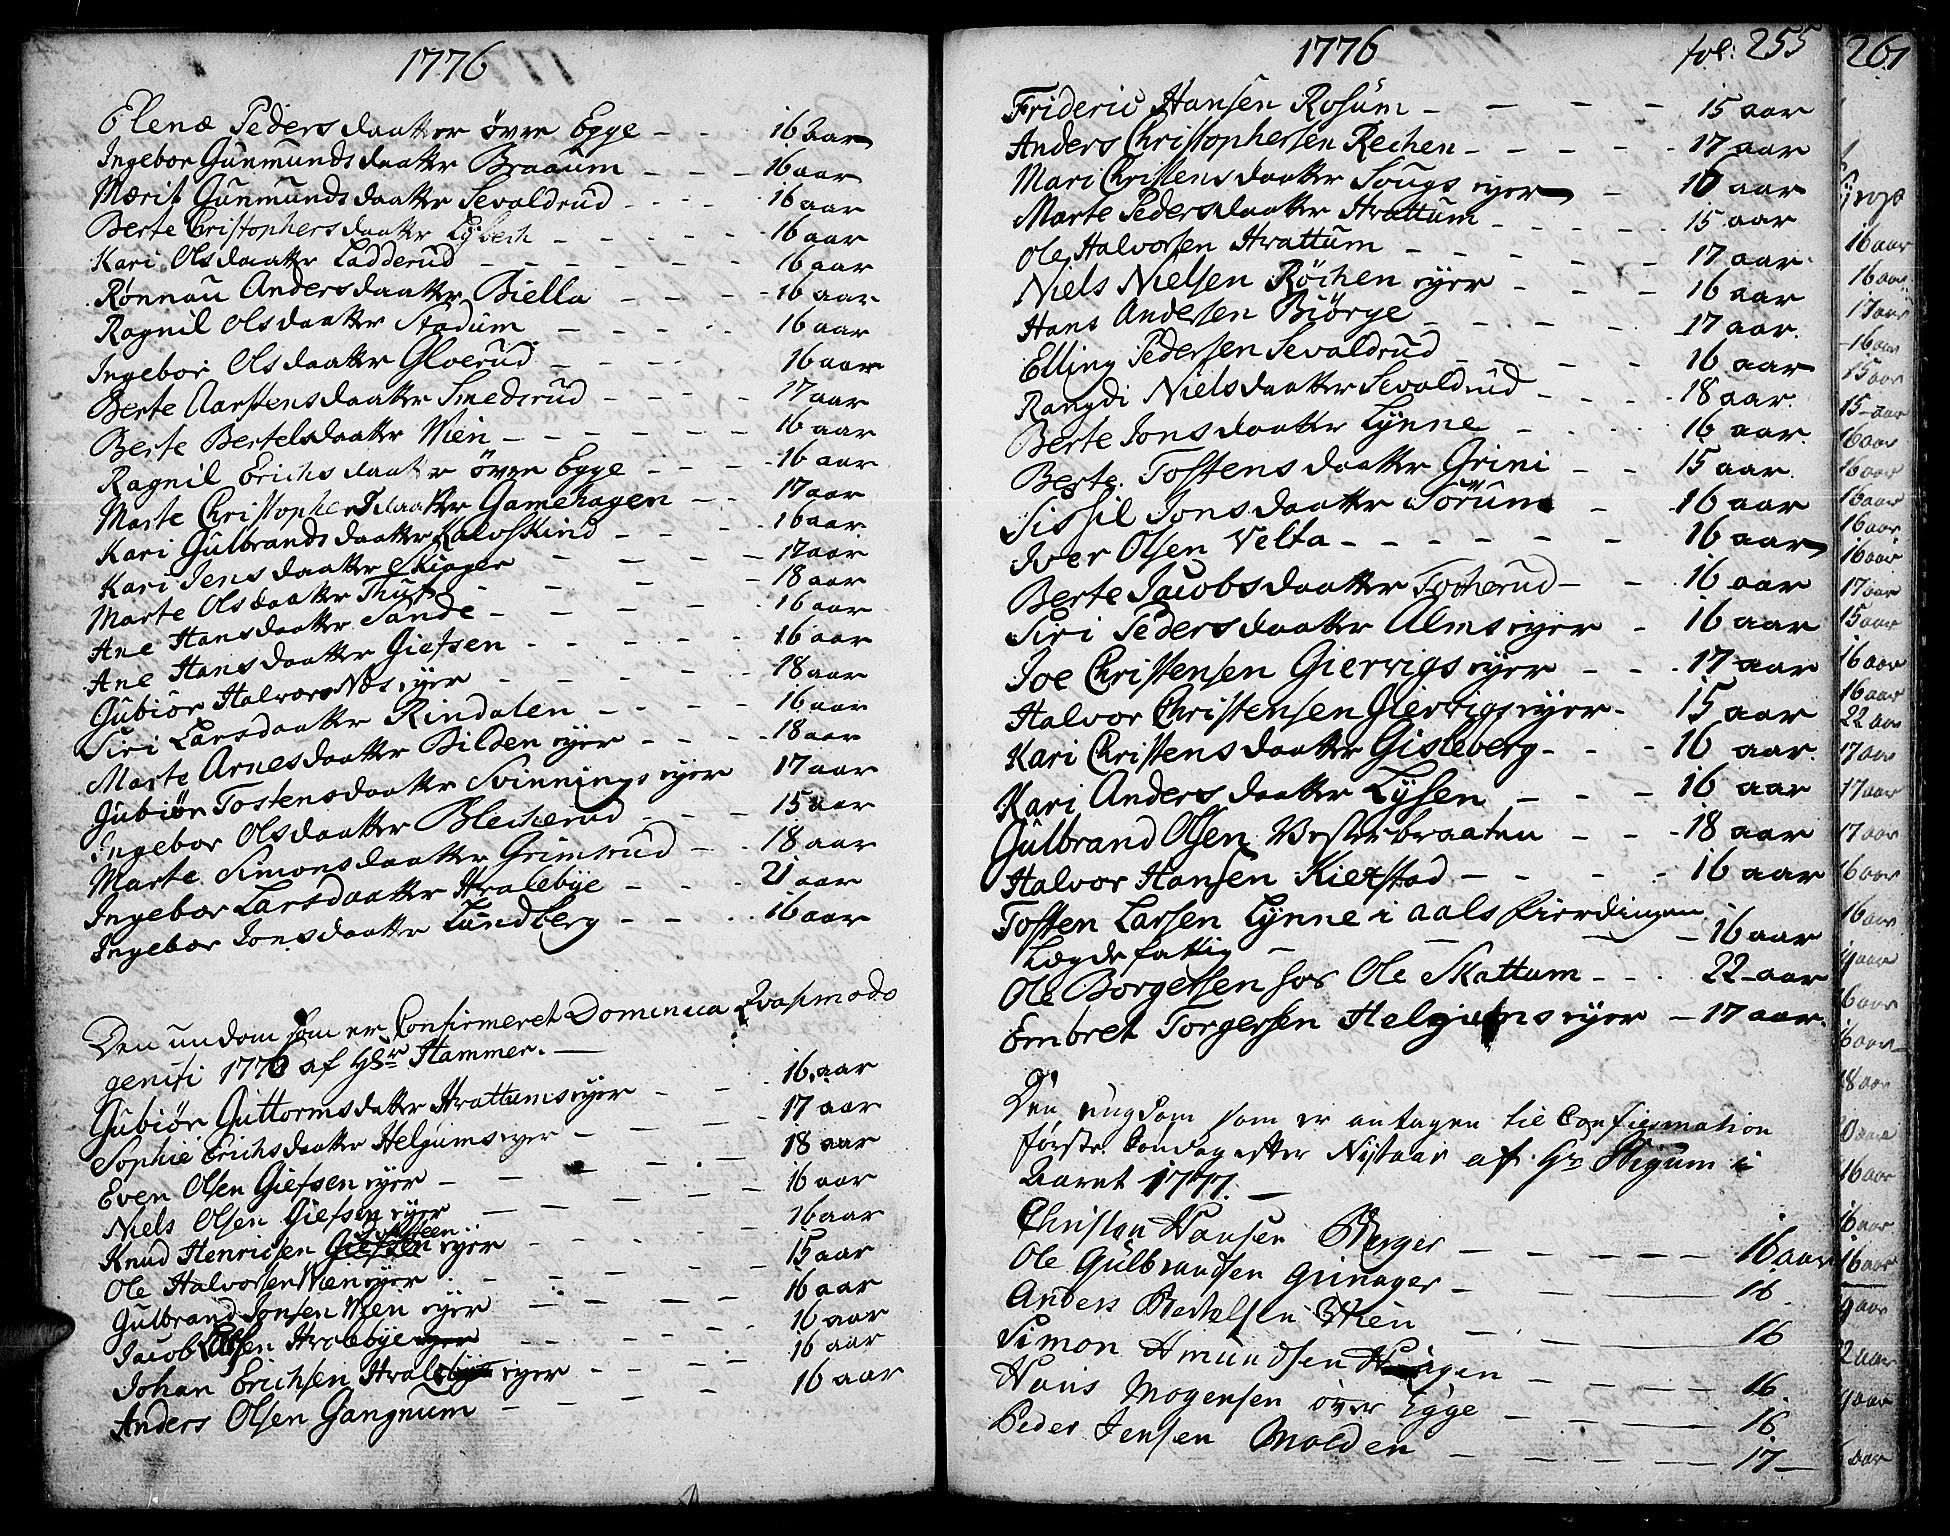 1776
Elenæ Pedersdaatter øvre Egge - - - 16 aar
Ingebor Gunmundsdaatter Braaum - - - 16 aar
Mærit Gunmundsdaatter Sevaldrud - - - - 16 aar
Berte Christophersdaatter Lybech - - - - - 16 aar
Kari Olsdaatter Ladderud - - - - - - 16 aar
Rønnau Andersdaatter Biella - - - - 16 aar
Ragnil Olsdaatter Stadum - - - - 16 aar
Ingebor Olsdaatter Gloerud - - - - 16 aar
Berte Aarstensdaatter Smedsrud - - - - 17 aar
Berte Bertelsdaatter Wien - - - - - - 16 aar
Ragnil Erichsdaatter øvre Egge - - - - 16 aar
Marte Christophersdaatter Gamehagen - - 17 aar
Kari Gulbrandsdaatter Kalvskind - - - 16 aar
Kari Jensdaatter Skiager - - - - 17 aar
Marte Olsdaatter - - - - 18 aar
Ane Hansdaatter Sande - - - - - 16 aar
Ane Hansdaatter Giefsen - - - - - 16 aar
Gubiør Halvors Næs eyer - - - - - 18 aar
Siri Larsdaatter Rindalen - - - - 16 aar
Marte Arnesdaatter Bilden eyer - - - - 18 aar
Gubiør Tostensdaatter Svinnings eyer 17 aar
Ingebor Olsdaatter Blecherud - - - 15 aar
Marte Simonsdaatter Grimsrud - - 18 aar
Ingebor Larsdaatter Hvalebye - - - - 21 aar
Ingebor Jonsdaatter Lundberg - - - - 16 aar
Den undom som er Confirmeret Dominica Qvasimodo
geniti 1776 af Hr Hammer. —
Gubiør Guttormsdatter Hvattums eyer - - - 16 aar
Sophie Erichsdaatter Helgums eyer - - - 17 aar
Even Olsen Giefsen eyer - - - - 18 aar
Niels Olsen Giefsen eyer - - - - 16 aar
Knud Henrichsen eyer - - - - 16 aar
Ole Halvorsen Wien eyer - - - - - 15 aar
Gulbrand Jonsen Wien eyer - - - - 16 aar
Jacob Olsen Hvalebye - - - - 16 aar
Johan Erichsen Hvalebye eyer - - - - 16 aar
Anders Olsen Gangnum - - - - 16 aar
1776 fol: 255
Frideric Hansen Rosum - - - - 15 aar
Anders Christophersen Rechen - - - - - 17 aar
Mari Christensdaatter Sougs eyer - 16 aar
Marte Pedersdaatter Hvattum - - - - - 15 aar
Ole Halvorsen Hvattum - - - - - 17 aar
Niels Nielsen Røchen eyer - - - - 16 aar
Hans Andersen Biørge - - - - - 17 aar.
Elling Pedersen Sevaldrud - - - - - 16 aar
Rangdi Nielsdaatter Sevaldrud - - - - 18 aar.
Berte Jonsdaatter Lynne - - - - 16 aar.
Berte Tostensdaatter Grini - - 15 aar
Sissil Jonsdaatter Sørum - 16 aar
Iver Olsen Velta - - - - - - 16 aar
Berte Jacobsdaatter Focherud - - 16 aar
Siri Pedersdaatter Alms eyer - 16 aar
Joe Christensen Giervigs eyer - - - 17 aar
Halvor Christensen Giervigs eyer - 15 aar
Kari Christensdaatter Gisleberg - - - 16 aar.
Kari Andersdaatter Lysen - - - 16 aar
Gulbrand Olsen Vesterbraaten - - - 18 aar
Halvor Hansen Kierstad - - - - 16 aar
Tosten Larsen Lynne i aals fierdingen
Lægdefattig - — - 16 aar
Ole Borgersen hos Ole Skattum - - - 22 - aar
Embret Torgersen Helgums eyer - 17 aar.
Den ungdom som er antagen til Confirmation
første Søndag efter Nytaar af Hr Stigum i
Aaret 1777. —
Christan Hansen Berger - - - - - 16 aar
Ole Gulbrandsen Grinager - - - 16
Anders Bertelsen Wien - - - 16
Simon Amundsen - - - - 16.
Hans Mogensen över Egge - - - 16
Peder Jensen Molden - - - 17 -
261
16 aar
16 aar
17 aar
16 aar
15 aar
15 - aar
16 aar
16 aar
16 aar
16 aar
16 aar
17 aar
15 aar
16 aar
16 aar
22 aar
17 aar
17 aar
17 aar
16 aar
16 aar